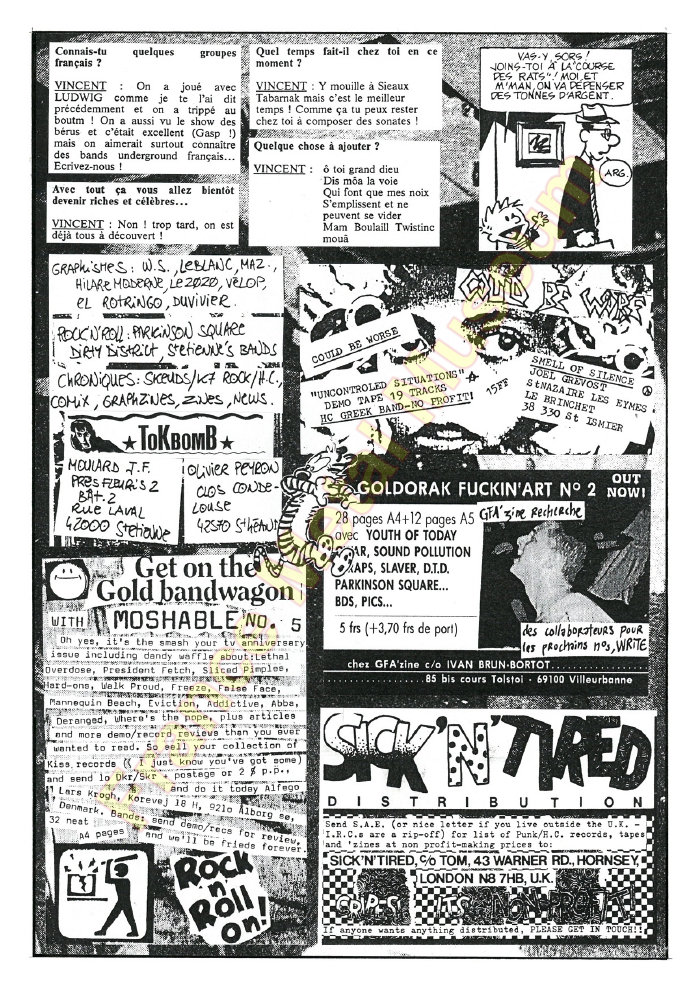 Connais-tu quelques groupes
français ?
VINCENT : On a joué avec
LUDWIG comme je te l'ai dit
précédemment et on a trippé au
boutm ! On a aussi vu le show des
bérus et c'était excellent (Gasp !)
mais on aimerait surtout connaître
des bands underground français...
Ecrivez-nous !
Avec tout ça vous allez bientôt
devenir riches et célèbres...
VINCENT : Non ! trop tard, on est
déjà tous à découvert !
Quel temps fait-il chez toi en ce
moment ?
VINCENT : Y mouille à Sieaux
Tabarnak mais c'est le meilleur
temps ! Comme ça tu peux rester
chez toi à composer des sonates !
Quelque chose à ajouter ?
VINCENT : ô toi grand dieu
Dis môa la voie
Qui font que mes noix
S'emplissent et ne
peuvent se vider
Mam Boulaill Twistinc
mouâ
VAS-Y, SORS !
JOINS-TOI À LA "COURSE
DES RATS" ! MOI, ET
M'MAN, ON VA DÉPENSER
DES TONNES D'ARGENT.
ARG.
GRAPHISTES : W.S., LEBLANC, MAZ.,
HILARE MODERNE, LE ZOZO, VELOP,
EL ROTRINGO, DUVIVIER.
ROCK'N'ROLL : PARKINSON SQUARE
DIRTY DISTRICT, STETIENNE'S BANDS
CHRONIQUES : SKEUDS/K7 ROCK/H.C.,
COMIX, GRAPHZINES, ZINES, NEWS.
TOKBOMB
MOULARD J.F.
PRES FLEURIS 2
BÂT. 2
RUE LAVAL
42000 STETIENNE
OLIVIER PEYRON
CLOS CONDE-
LOUSE
42570 ST HÉAND
COULD BE WORSE
COULD BE WORSE
"UNCONTROLED SITUATIONS"
DEMO TAPE 19 TRACKS
HC GREEK BAND-NO PROFIT!
15FF
SMELL OF SILENCE
JOEL GREVOST
StNAZAIRE LES EYMES
LE BRINCHET
38 330 St ISMIER
GOLDORAK FUCKIN'ART N° 2
OUT
NOW!
28 pages A4+12 pages A5
avec YOUTH OF TODAY
SOUND POLLUTION
SLAVER, D.T.D.
PARKINSON SQUARE...
BDS, PICS...
5 frs (+3,70 frs de port)
GFA'zine Recherche
des collaborateurs pour
les prochains nos, WRITE
chez GFA'zine c/o IVAN BRUN-BORTOT
85 bis cours Tolstoï - 69100 Villeurbanne
Get on the
Gold bandwagon
WITH MOSHABLE NO. 5
Oh yes, it's the smash your tv anniversery
issue including dandy waffle about:Lethal
Overdose, President Fetch, Sliced Pimples,
Hard-ons, Walk Proud, Freeze, False Face,
Mannequin Beach, Eviction, Addictive, Abba,
Deranged, Where's the pope, plus articles
and more demo/record reviews than you ever
wanted to read. So sell your collection of
Kiss records (( I just know you've got some)
and send 10 Dkr/Skr + postage or 2 $ p.p.,
and do it today Alfego
Lars Krogh, Korevej 18 H, 9210 Alborg sø,
Denmark. Bands: send demo/recs for review,
32 neat
A4 pages and we'll be frieds forever.
Rock
n'
Roll
on!
SICK 'N' TIRED
DISTRIBUTION
Send S.A.E. (or nice letter if you live outside the U.K. -
I.R.C.s are a rip-off) for list of Punk/H.C. records, tapes
and 'zines at non profit-making prices to:
SICK'N'TIRED, c/o TOM, 43 WARNER RD., HORNSEY,
LONDON N8 7HB, U.K.
CRIPES! IT'S NON-PROFIT!
If anyone wants anything distributed, PLEASE GET IN TOUCH!!